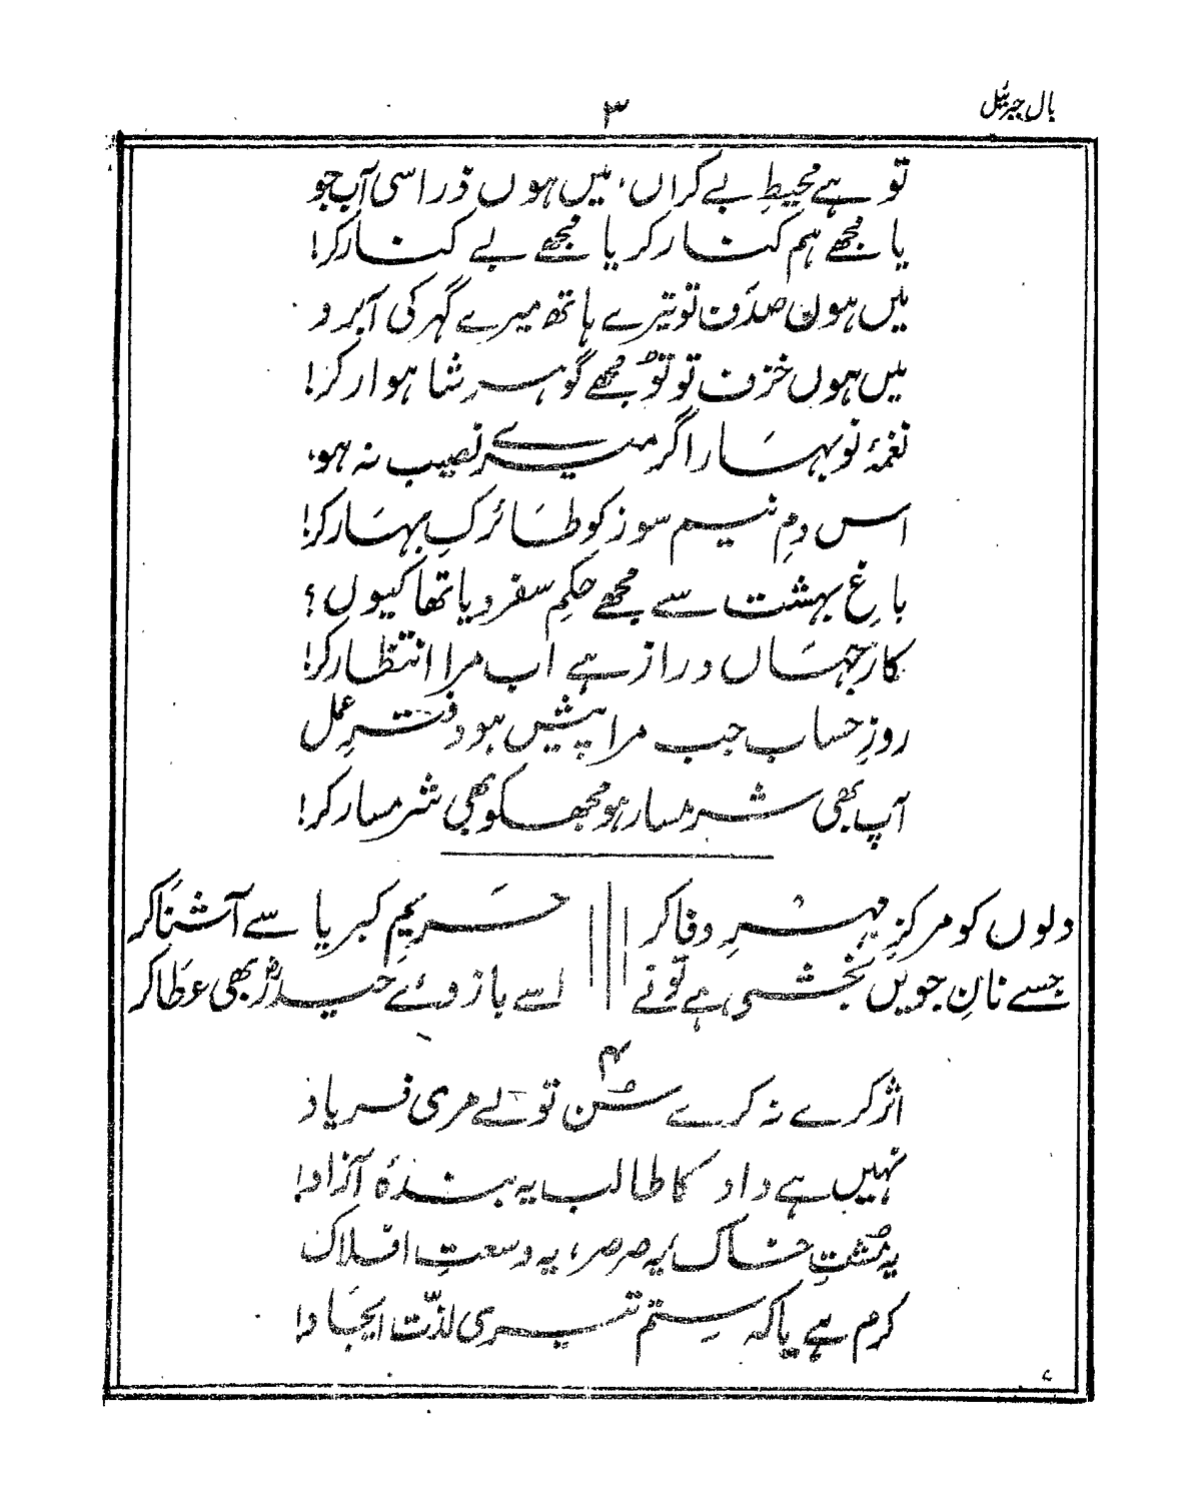 بال جبرئیل
۳
تو ہے محیطِ بے کراں، میں ہوں ذرا سی آبِ جو
یا مجھے ہم کنار کر یا مجھے بے کنار کر!
میں ہوں صدَف تو تیرے ہاتھ میرے گہر کی آبرو
میں ہوں خزف تو تُو مجھے گوہرِ شاہوار کر!
نغمۂ نو بہار اگر میرے نصیب نہ ہو،
اس دمِ نیم سوز کو طائرکِ بہار کر!
باغِ بہشت سے مجھے حکمِ سفر دیا تھا کیوں؟
کارِ جہاں دراز ہے اب مرا انتظار کر!
روزِ حساب جب مرا پیش ہو دفترِ عمل
آپ بھی شرمسار ہو مجھ کو بھی شرمسار کر!
دلوں کو مرکزِ مہر و وفا کر حریمِ کبریا سے آشنا کر
جسے نانِ جویں بخشی ہے تُو نے اُسے بازوئے حیدرؓ بھی عطا کر
۴
اثر کرے نہ کرے سُن تو لے مری فریاد
نہیں ہے داد کا طالب یہ بندۂ آزاد!
یہ مُشتِ خاک، یہ صرصر، یہ وسعتِ افلاک
کرم ہے یا کہ ستم تیری لذّتِ ایجاد!